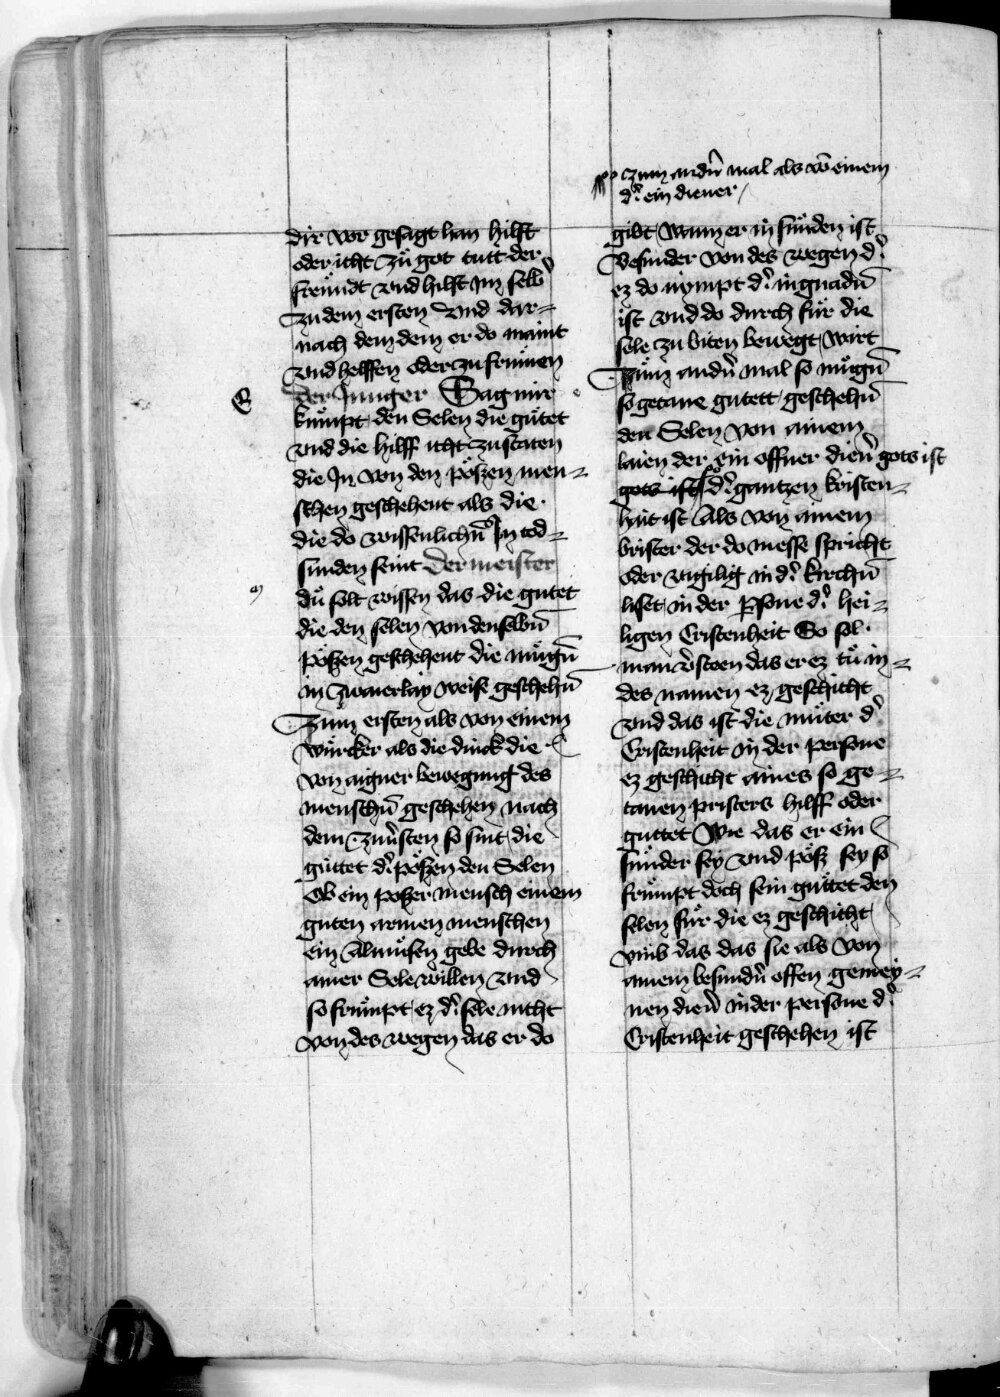 dir vor gesagt han hilft
oder icht zů got tutt der
freündt vnd hilft jm selb
zu dem ersten vnd dar-
nach dem dem er do maint
vnd helffen oder zu frümen
Der Junger Sag mir
kümpt den Selen die gůtet
vnd die hilff icht zu staten
die Jn von den pöszen men-
schen geschehent als die
die do wissenlichn̄ Jn tod-
sunden seint Der meister
dů solt wissen das die gutet
die den selen von denselbn̄
pöszen geschehent die mügn̄
in zwaierlay weise geschehn̄
Zum ersten als von einem
würcker als die dinck die
von aigner bewegung des
menschn̄ geschehen nach
dem zum ersten so sint die
güttet d' pöszen den Selen
Ob ein poszer mensch einem
guten armen menschen
ein Almůsen gebe durch
ainer Sele willen vnd
so frümpt ez d' sele nicht
von des wegen das er do
zum andn̄ mal als vō einem
d' ein diener
gibt wann er in sünden ist
Besunder von des wegen d'
ez do nympt d' in gnadn̄
ist vnd do durch für die
sele zu biten bewegt wirt
Zum andn̄ mal so mügn̄
so getane gutett geschehn̄
den Selen von ainem
laien der ein offner dien' gots ist
gots ist d' gantzen kristen-
hait ist Als von ainem
brister der do messe spricht
oder vigilig in d' kirchn̄
liset in der psone d' hei-
ligen Cristenheit So sol
man v'steen das er ez tů in
des namen ez geschicht
vnd das ist die můter d'
Cristenheit in der persone
ez geschicht aines so ge-
tanen pristers hilff oder
guttet Wie das er ein
sünder sey vnd pösz sey so
frümpt doch sein gůttet den
selen für die ez geschicht
vmb das das sie als von
ainem besundn̄ offen gemey-
nen dien' in der persone d'
Cristenheit geschehen ist